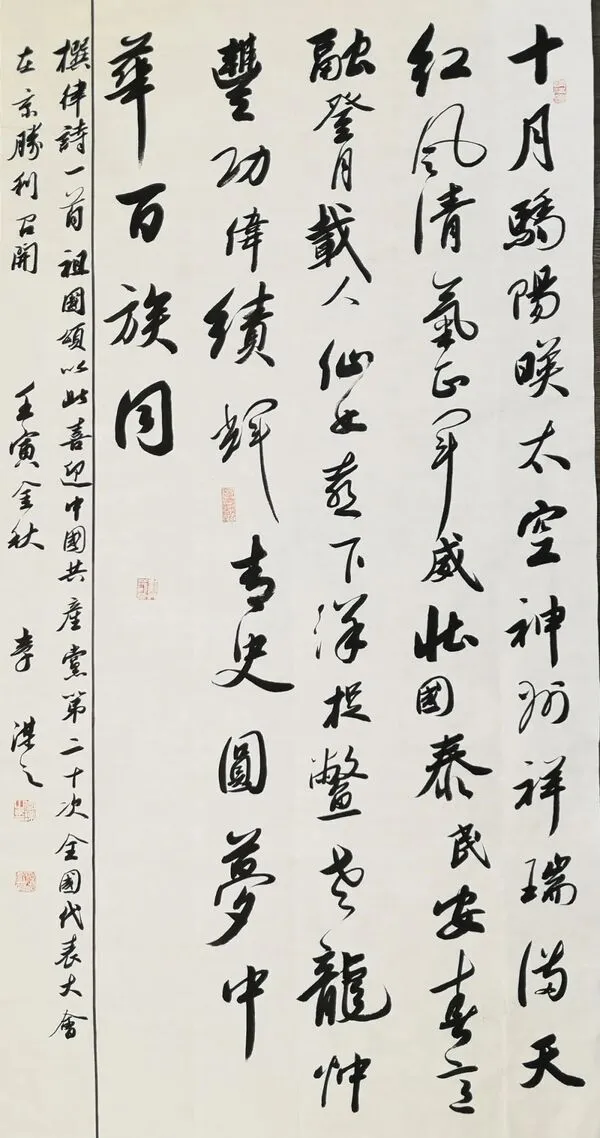 十月驕陽暎太空神州祥瑞滿天
紅風清氣正軍威壯國泰民安春意
融登月載人仙女慕下洋捉鱉老龍忡
豐功偉績輝青史圓夢中
華百族同
撰律詩一首祖國頌以此喜迎中國共產黨第二十次全國代表大會
在京勝利召開 壬寅金秋 李